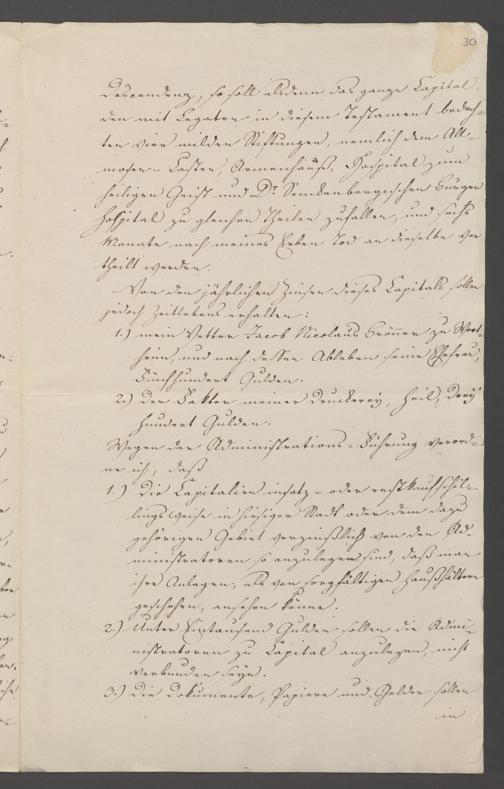 30
Descendenz, so soll alsdenn das ganze Capital
den mit Legaten in diesem Testament bedach-
ten vier milden Stiftungen, nemlich dem All-
mosen-Casten, Armenhauß, Hospital zum
heiligen Geist und Dr. Senckenbergischen Bürger
hospital zu gleichen Theilen zufallen, und sechs
Monate nach meines Erben Tod an dieselbe ver
theilt werden.
Von den jährlichen Zinsen dieses Capitals sollen
jedoch Zeitlebens erhalten:
1.) mein Vetter Jacob Nicolaus Brönner zu Wert-
heim, und nach dessen Ableben seine Ehefrau,
Fünfhundert Gulden.
2.) Der Faktor meiner Druckerey, Heil, Drey
hundert Gulden.
Wegen der Administrations-Führung verord-
ne ich, daß
1.) Die Capitalien insatz- oder restkaufschil-
lingsweise in hiesiger Stadt oder dem dazu
gehörigen Gebiet verzinßlich von den Ad-
ministratoren so anzulegen sind, daß man
ihre Anlegen, als von sorgfältigen Haußhältern
geschehen, ansehen könne.
2.) Unter Eintausend Gulden sollen die Admi-
nistratoren zu Capital anzulegen, nicht
verbunden seyn.
3.) Die Dokumente, Papiere und Gelder sollen
in